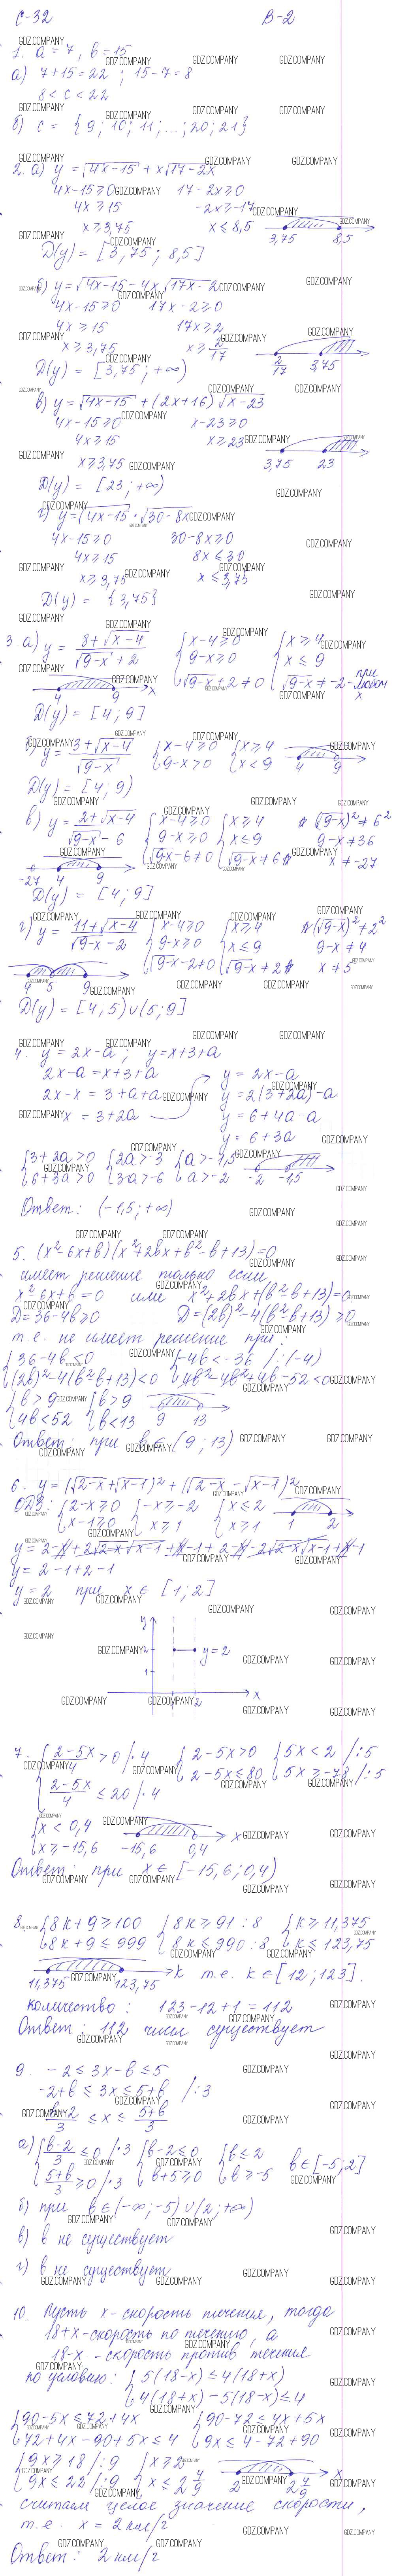 С-32 В-2
1. a = 7, b = 15
а) 7+15=22 ; 15-7=8
8 < c < 22
б) c = {9; 10; 11; ...; 20; 21}
2. а) y = √(4x-15) + x√(17-2x)
4x-15≥0 17-2x≥0
4x≥15 -2x≥-17
x≥3,75 x≤8,5
3,75 8,5
D(y) = [3,75; 8,5]
б) y=√(4x-15) - 4x√(17x-2)
4x-15≥0 17x-2≥0
4x≥15 17x≥2
x≥3,75 x≥2/17
2/17 3,75
D(y) = [3,75; +∞)
в) y=√(4x-15) + (2x+16)√(x-23)
4x-15≥0 x-23≥0
4x≥15 x≥23
x≥3,75
3,75 23
D(y) = [23; +∞)
г) y=√(4x-15) · √(30-8x)
4x-15≥0 30-8x≥0
4x≥15 8x≤30
x≥3,75 x≤3,75
D(y) = {3,75}
3 а) y = (8+√(x-4))/(√(9-x)+2) {x-4≥0 {x≥4
9-x≥0 x≤9
√(9-x)+2≠0 √(9-x)≠-2 - при любом x
4 9 x
D(y) = [4; 9]
б) y = (3+√(x-4))/√(9-x) {x-4≥0 {x≥4
9-x>0 x<9
4 9
D(y) = [4; 9)
в) y = (2+√(x-4))/(√(9-x)-6) {x-4≥0 {x≥4 (√(9-x))²≠6²
9-x≥0 x≤9 9-x≠36
√(9-x)-6≠0 √(9-x)≠6 x≠-27
-27 4 9
D(y) = [4; 9]
г) y = (11+√(x-4))/(√(9-x)-2) {x-4≥0 {x≥4 (√(9-x))²≠2²
9-x≥0 x≤9 9-x≠4
√(9-x)-2≠0 √(9-x)≠2 x≠5
4 5 9
D(y) = [4, 5)∪(5; 9]
4. y = 2x-a; y=x+3+a
2x-a=x+3+a y=2x-a
2x-x=3+a+a y=2(3+2a)-a
x=3+2a y=6+4a-a
y=6+3a
{3+2a>0 {2a>-3 {a>-1,5
6+3a>0 3a>-6 a>-2
-2 -1,5
Ответ: (-1,5; +∞)
5. (x²-6x+b)(x²+2bx+b²-b+13)=0
имеет решение только если
x²-6x+b=0 или x²+2bx+(b²-b+13)=0
D=36-4b≥0 D=(2b)²-4(b²-b+13)≥0
т.е. не имеет решение при:
{36-4b<0 {-4b<-36 /:(-4)
(2b)²-4(b²-b+13)<0 4b²-4b²+4b-52<0
{b>9 {b>9
4b<52 b<13
9 13
Ответ: при b∈(9; 13)
6. y = (√(2-x)+√(x-1))²+(√(2-x)-√(x-1))²
ОДЗ: {2-x≥0 {-x≥-2 {x≤2
x-1≥0 x≥1 x≥1
1 2
y=2-x+2√(2-x)√(x-1)+x-1+2-x-2√(2-x)√(x-1)+x-1
y=2-1+2-1
y=2 при x∈[1; 2]
y
2 y=2
1
2 x
7. {(2-5x)/4>0 /·4 {2-5x>0 {5x<2 /:5
(2-5x)/4≤20 /·4 2-5x≤80 5x≥-78 /:5
{x<0,4
x≥-15,6 -15,6 0,4 x
Ответ: при x∈[-15,6; 0,4)
8. {8k+9≥100 {8k≥91 :8 {k≥11,375
8k+9≤999 8k≤990 :8 k≤123,75
11,375 123,75 k т.е. k∈[12; 123].
количество: 123-12+1=112
Ответ: 112 чисел существует
9. -2≤3x-b≤5
-2+b≤3x≤5+b /:3
(b-2)/3≤x≤(5+b)/3
а) {(b-2)/3≤0 /·3 {b-2≤0 {b≤2 b∈[-5; 2]
(5+b)/3≥0 /·3 b+5≥0 b≥-5
б) при b∈(-∞; -5)∪(2; +∞)
в) b не существует
г) b не существует
10. Пусть x - скорость течения, тогда
18+x - скорость по течению, а
18-x - скорость против течения
По условию: {5(18-x)≤4(18+x)
4(18+x)-5(18-x)≤4
{90-5x≤72+4x {90-72≤4x+5x
72+4x-90+5x≤4 9x≤4-72+90
{9x≥18 /:9 {x≥2
9x≤22 /:9 x≤2 4/9 2 2 4/9 x
считаем целое значение скорости,
т.е. x = 2 км/г
Ответ: 2 км/г